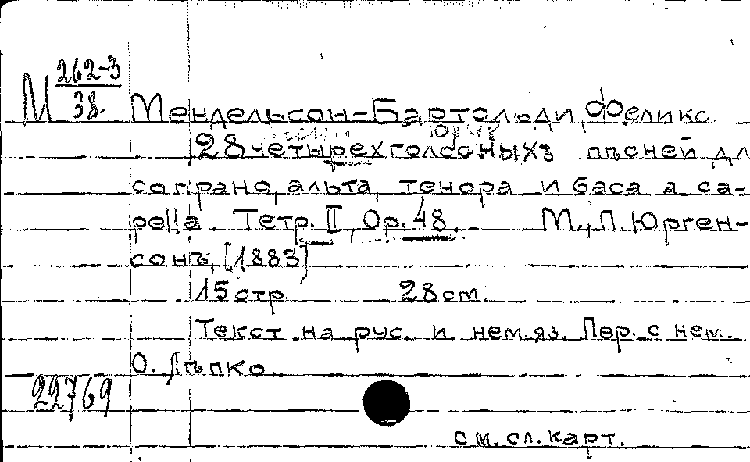 М 262-3
38.
Мендельсон-Бартольди, Феликс.
28 четырехголосныхъ пѣсней дл
сопрано, альта, тенора и баса а са-
pella. Тетр. II, Op. 48. М., П. Юрген-
сонъ, [1883]
15 стр. 28 см.
Текст на рус. и нем. яз. Пер. с нем.
О. Лѣпко
22769
см. сл. карт.